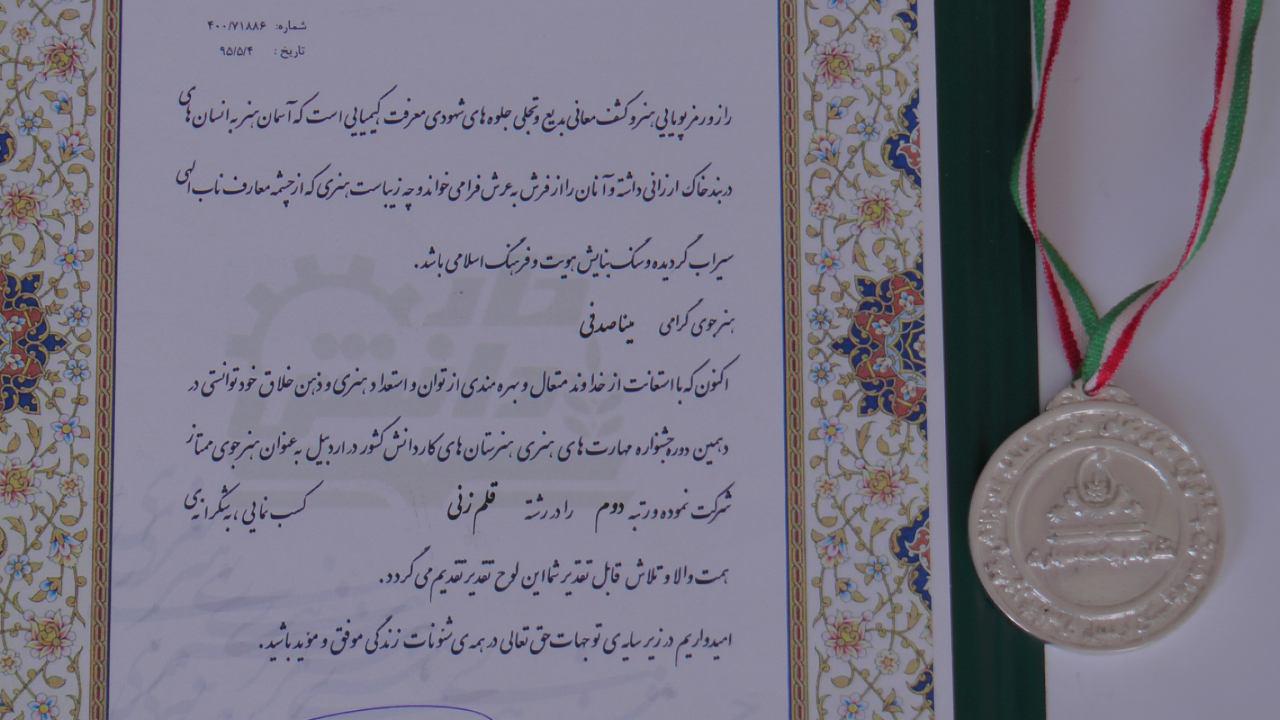 شماره: ۴۰۰/۷۱۸۸۶
تاریخ: ۹۵/۵/۴
راز و رمز پویایی هنر و کشف معانی بدیع و تجلی جلوه های شهودی معرفت کیمیایی است که آسمان هنر به انسان های
در بند خاک ارزانی داشته و آنان را از فرش به عرش فرامی خواند و چه زیباست هنری که از چشمه معارف ناب الهی
سیراب گردیده و سنگ بنایش هویت و فرهنگ اسلامی باشد.
هنرجوی گرامی مینا صدفی
اکنون که با استعانت از خداوند متعال و بهره مندی از توان و استعداد هنری و ذهن خلاق خود توانستی در
دهمین دوره جشنواره مهارت های هنری هنرستان های کاردانش کشور در اردبیل به عنوان هنرجوی ممتاز
شرکت نموده و رتبه دوم را در رشته قلم زنی کسب نمایی، به شکرانه ی
همت والا و تلاش قابل تقدیر شما این لوح تقدیر تقدیم می گردد.
امیدواریم در زیر سایه ی توجهات حق تعالی در همه ی شئونات زندگی موفق و موید باشید.
کار
دانش